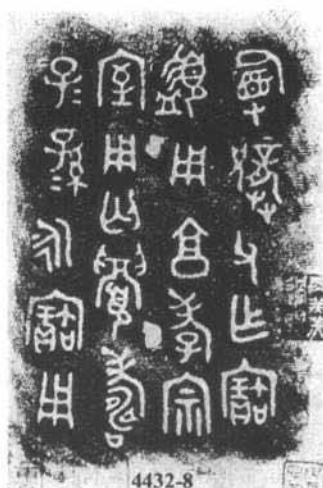 曼龏父乍寶
盨用亯孝宗
室用匃眉壽
子=孫=永寶用
4432-8